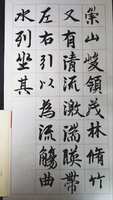 崇山峻領茂林脩竹
又有清流激湍暎帶
左右引以為流觴曲
水列坐其